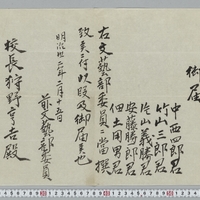 御届
中西四郎君
竹山三郎君
片山義勝君
安藤勝郎君
但土用男君
右文藝部委員ニ當撰
致候ニ付此段及御届候也
明治卅二年二月十五日
前文藝部委員
校長狩野亨吉殿